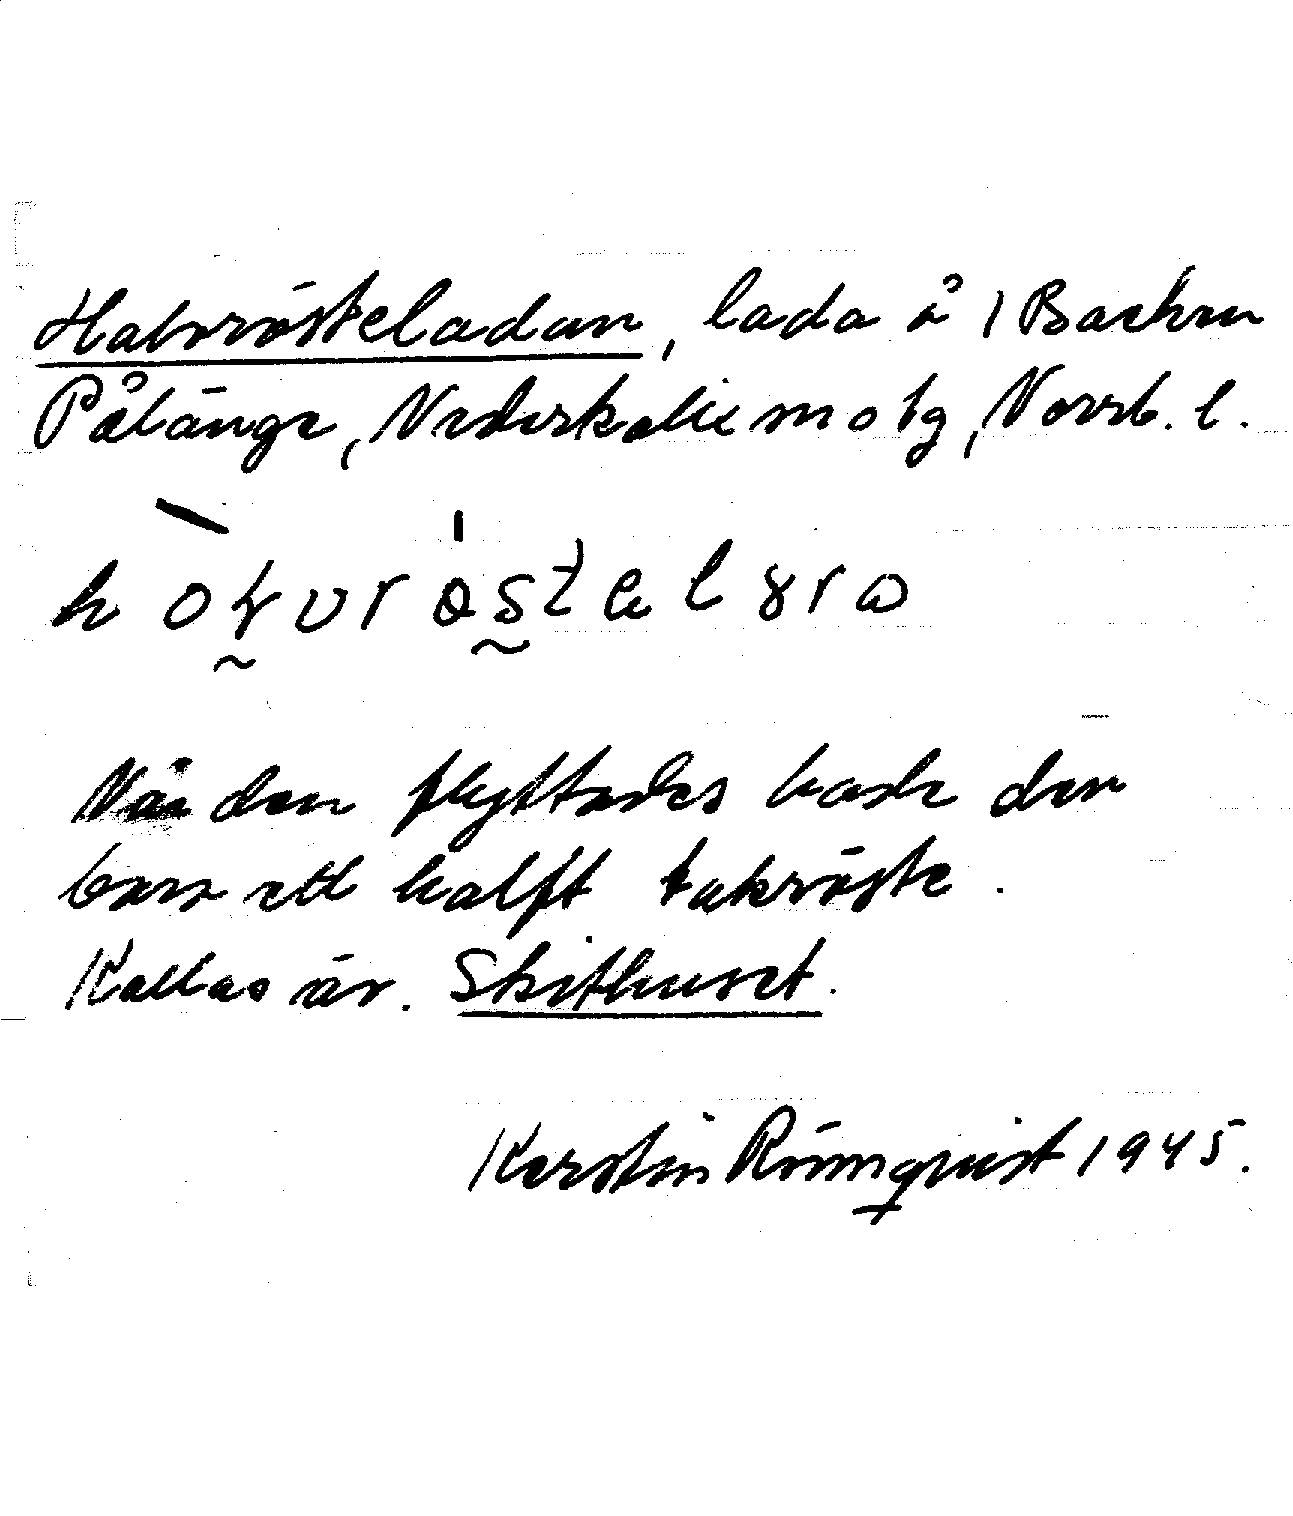 Halvrösteladan, lada å 1 Backen
Pålänge, Nederkalix motg, Norrb. l.
När den flyttades hade den
bara ett halft takröste.
Kallas äv. Skithuset.
Kerstin Rönnqvist 1945.